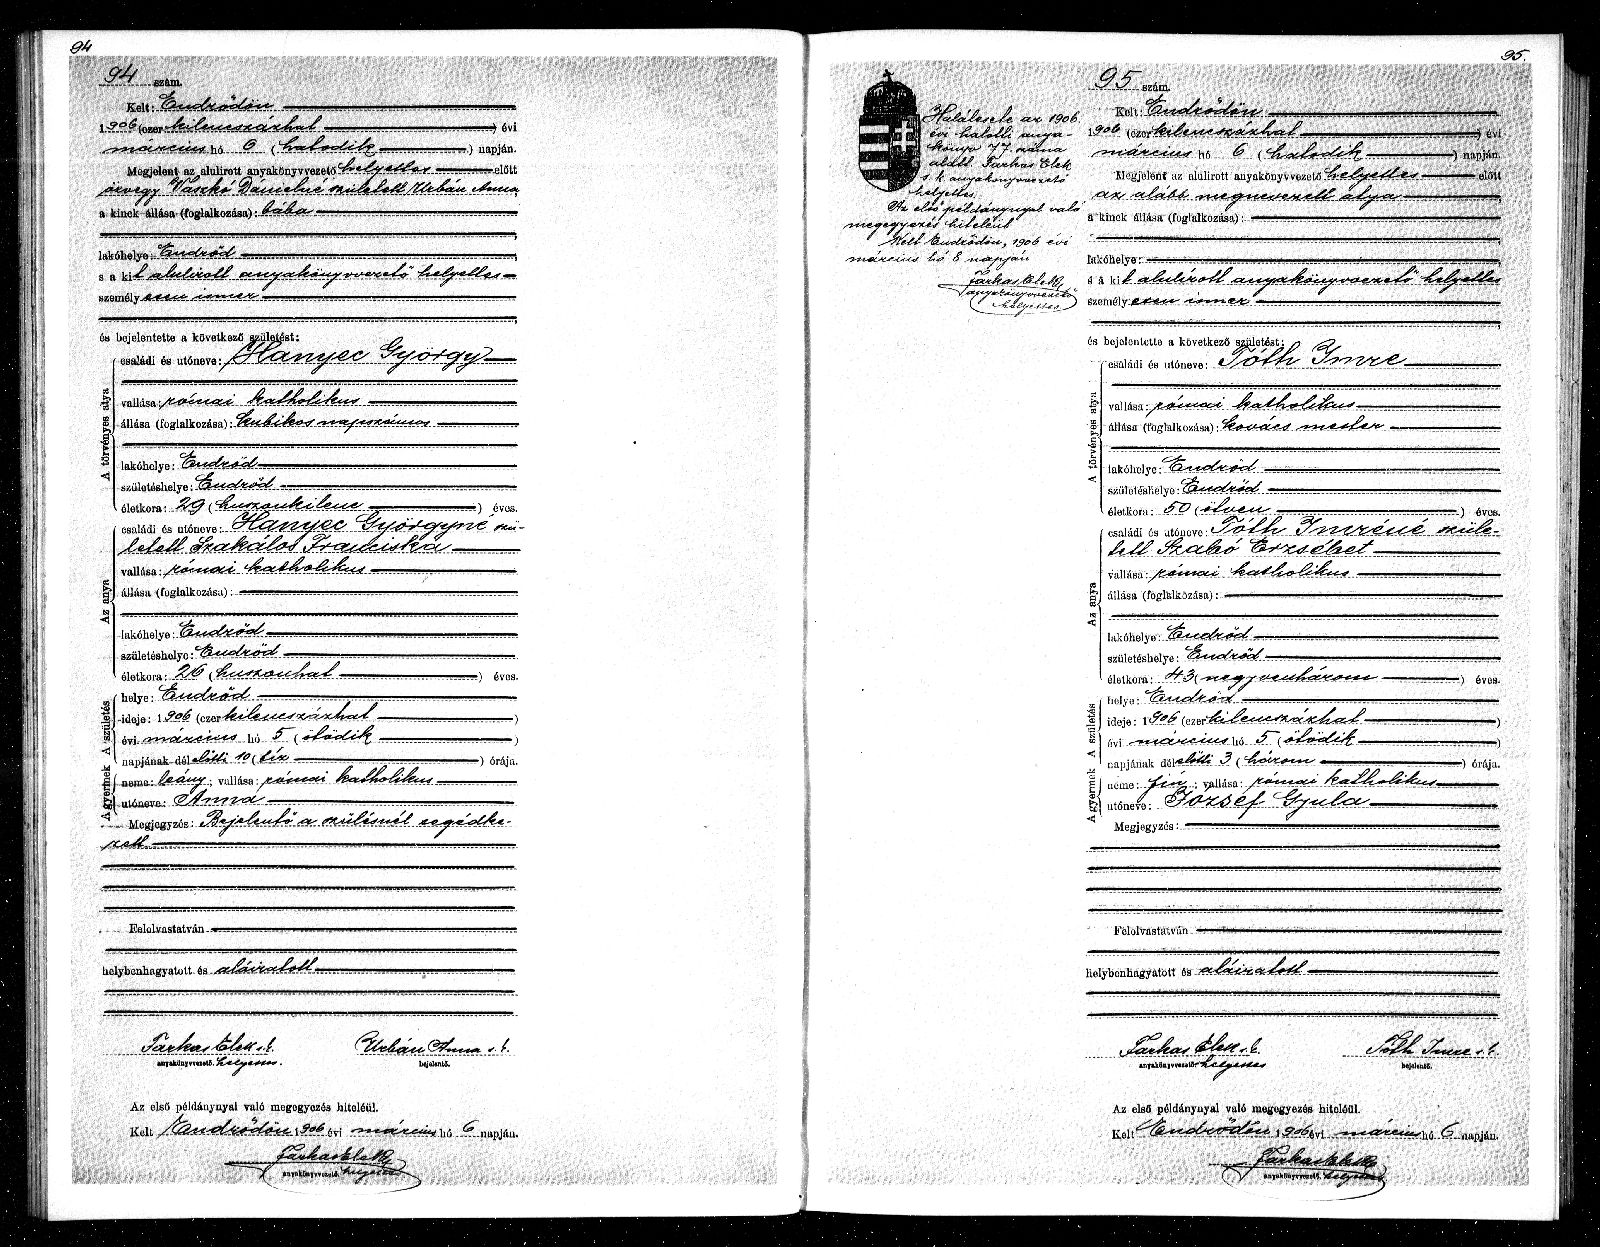 94
94 szám.
Kelt: Endrődön
1906 (ezer kilencszázhat ) évi
március hó 6 (hatodik ) napján.
Megjelent az alulirott anyakönyvvezető helyettes előtt
özvegy Vaszkó Dánielné született Urbán Anna,
a kinek állása (foglalkozása): bába
lakóhelye: Endrőd
s a kit alulirott anyakönyvvezető helyettes
személyesen ismer
és bejelentette a következő születést:
A törvényes atya
családi és utóneve: Hanyec György
vallása: római katholikus
állása (foglalkozása): kubikos napszámos
lakóhelye: Endrőd
születéshelye: Endrőd
életkora: 29 (huszonkilenc ) éves.
Az anya
családi és utóneve: Hanyec Györgyné szü-
letett Szakálos Franciska
vallása: római katholikus
állása (foglalkozása):
lakóhelye: Endrőd
születéshelye: Endrőd
életkora: 26 (huszonhat ) éves.
A születés
helye: Endrőd
ideje: 1906 (ezer kilencszázhat )
évi március hó 5 (ötödik )
napjának délelőtti 10 (tíz ) órája.
A gyermek
neme: leány; vallása: római katholikus
utóneve: Anna
Megjegyzés: Bejelentő a szülésnél segédke-
zett
Felolvastatván
helybenhagyatott és aláiratott
Farkas Elek s. k. Urbán Anna s. k.
anyakönyvvezető. helyettes bejelentő.
Az első példánynyal való megegyezés hiteléül.
Kelt Endrődön 1906 évi március hó 6 napján.
Farkas Elek
anyakönyvvezető. helyettes
95.
Halálesete az 1906
évi halotti anya-
könyv 77. száma
alatt. Farkas Elek
s. k. anyakönyvvezető
helyettes
Az első példánynyal való
megegyezés hiteléül
Kelt Endrődön, 1906 évi
március hó 8 napján
Farkas Elek
anyakönyvvezető
helyettes
95 szám.
Kelt: Endrődön
1906 (ezer kilencszázhat ) évi
március hó 6 (hatodik ) napján.
Megjelent az alulirott anyakönyvvezető helyettes előtt
az alább megnevezett atya
a kinek állása (foglalkozása):
lakóhelye:
s a kit alulirott anyakönyvvezető helyettes
személyesen ismer
és bejelentette a következő születést:
A törvényes atya
családi és utóneve: Tóth Imre
vallása: római katholikus
állása (foglalkozása): kovács mester
lakóhelye: Endrőd
születéshelye: Endrőd
életkora: 50 (ötven ) éves.
Az anya
családi és utóneve: Tóth Imréné szüle-
tett Szabó Erzsébet
vallása: római katholikus
állása (foglalkozása):
lakóhelye: Endrőd
születéshelye: Endrőd
életkora: 43 (negyvenhárom ) éves.
A születés
helye: Endrőd
ideje: 1906 (ezer kilencszázhat )
évi március hó 5 (ötödik )
napjának délelőtti 3 (három ) órája.
A gyermek
neme: fiú; vallása: római katholikus
utóneve: József Gyula
Megjegyzés:
Felolvastatván
helybenhagyatott és aláiratott
Farkas Elek s. k. Tóth Imre s. k.
anyakönyvvezető. helyettes bejelentő.
Az első példánynyal való megegyezés hiteléül.
Kelt Endrődön 1906 évi március hó 6 napján.
Farkas Elek
anyakönyvvezető. helyettes